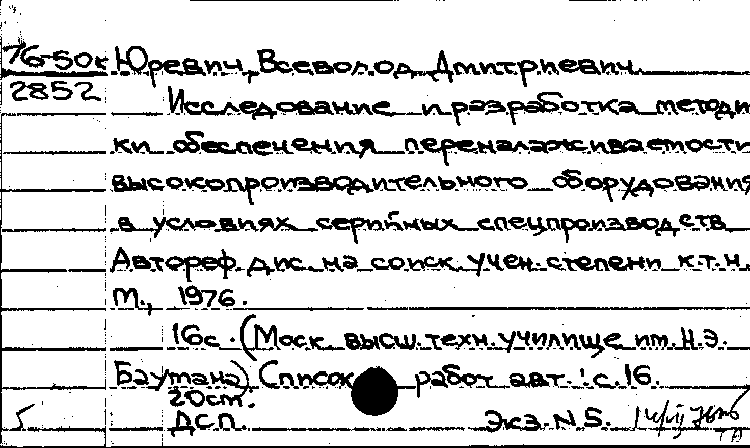 76-50к Юревич, Всеволод Дмитриевич
2852
Исследование и разработка методи
ки обеспечения переналаживаемости
высокопроизводительного оборудования
в условиях серийных спецпроизводств
Автореф. дис. на соиск. учен. степени к.т.н.
М., 1976.
16с. (Моск. высш. техн. училище им. Н.Э.
Баумана) Список работ авт.: с. 16.
20см.
ДСП. Экз. N 5.